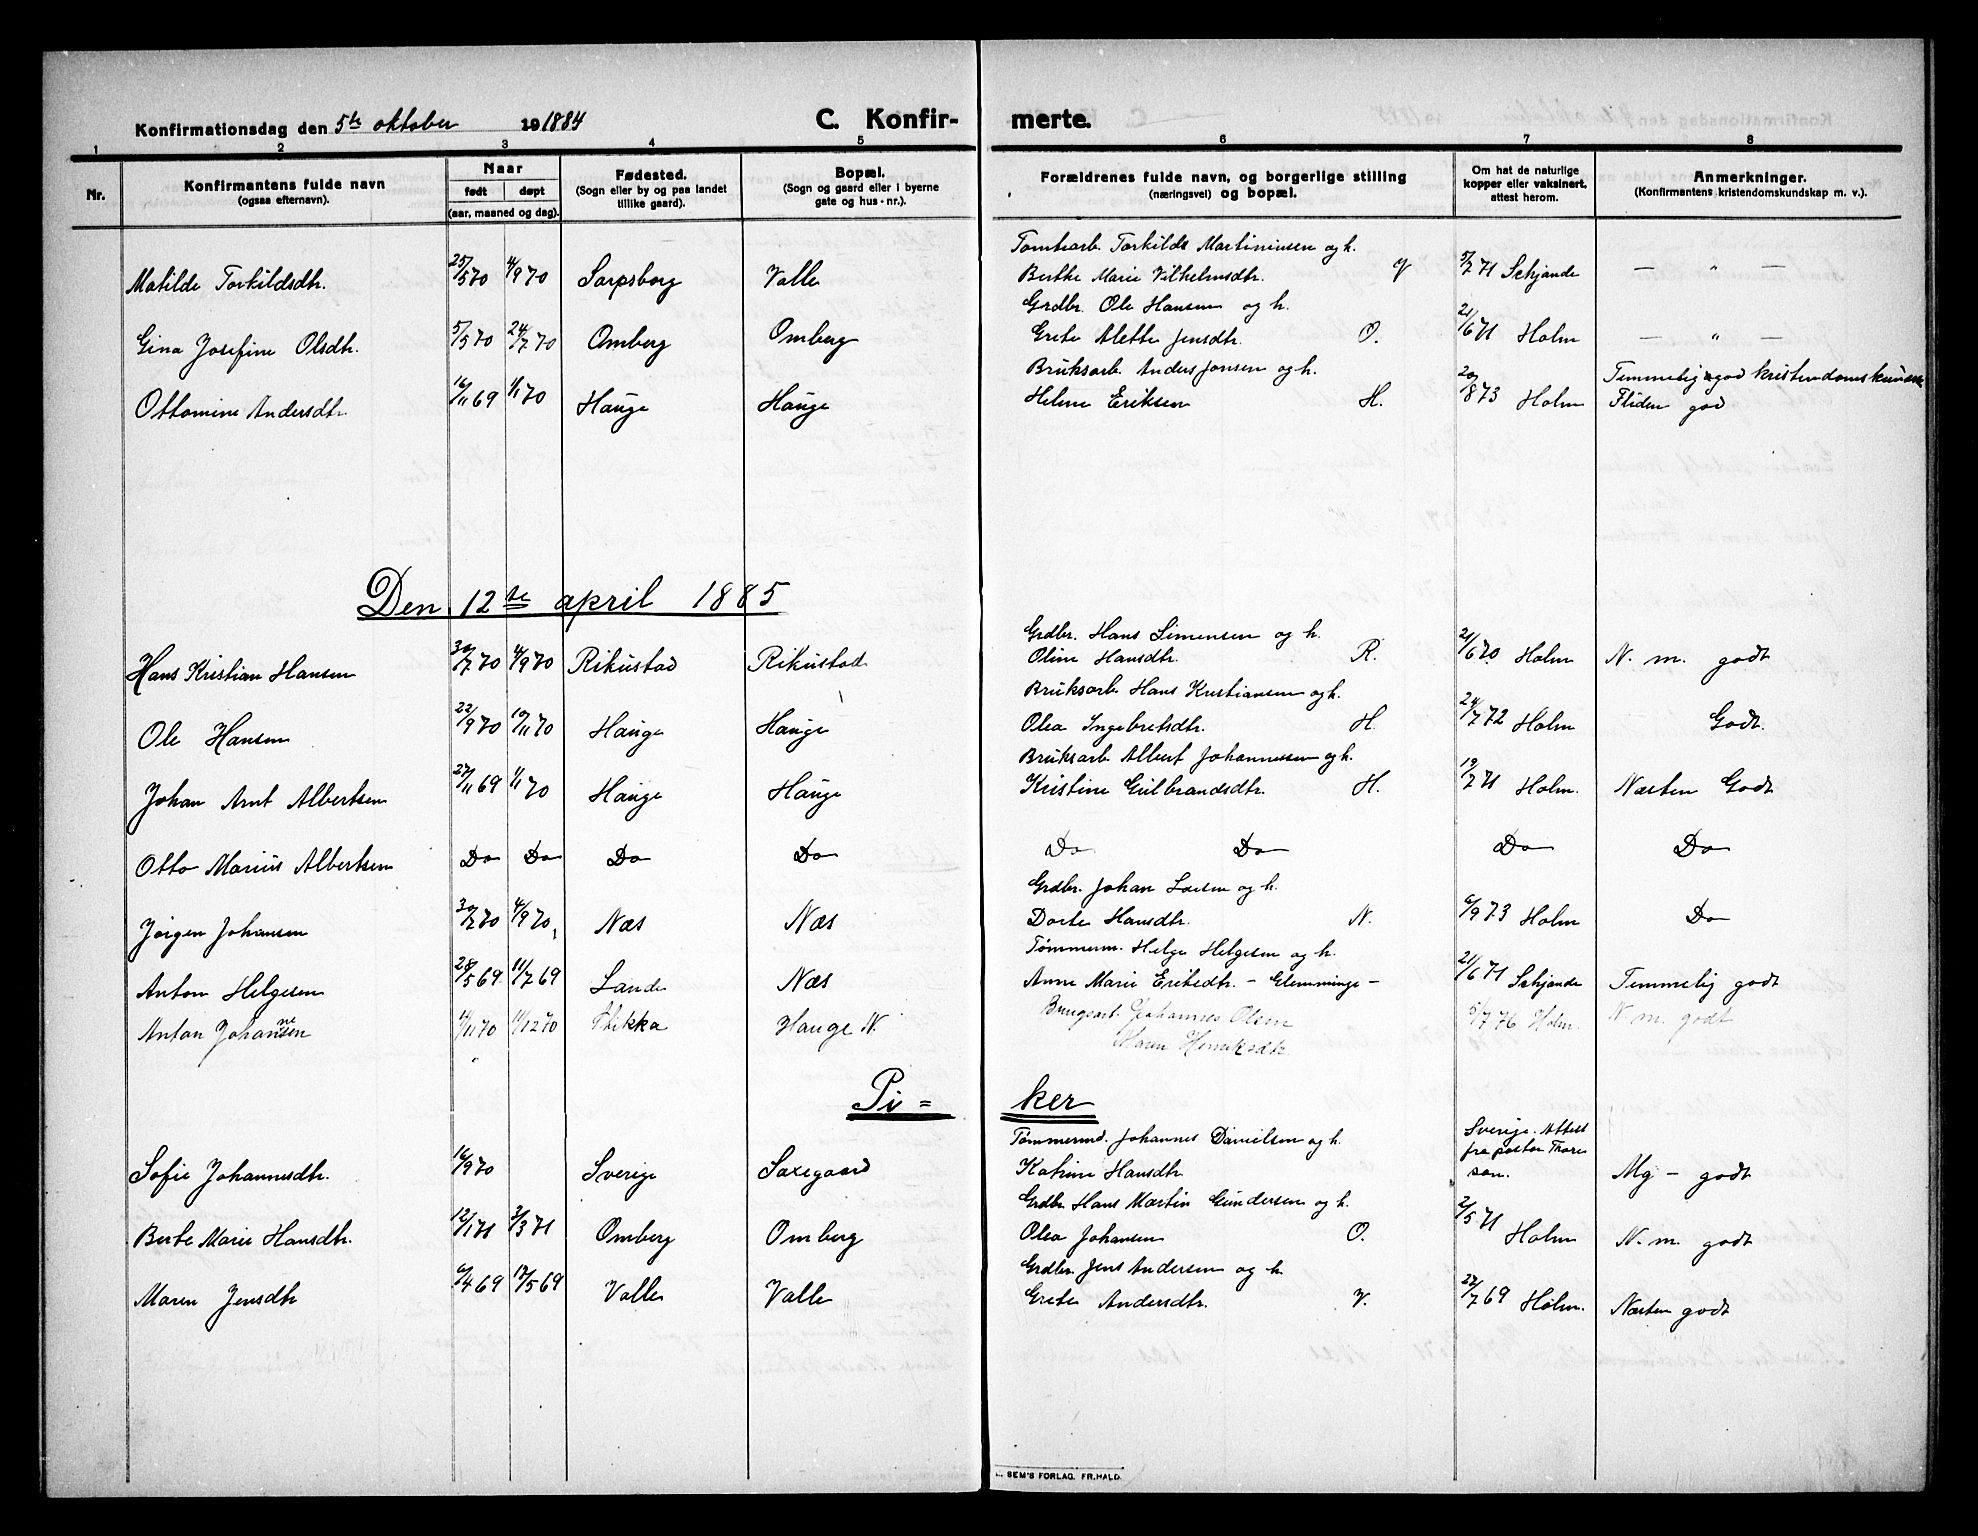 Konfirmationsdag den 5te oktober 19 1884 C. Konfirmerte.
1 2 3 4 5 6 7 8
Nr.
Konfirmantens fulde navn
(ogsaa efternavn).
Naar
født døpt
(aar, maaned og dag).
Fødested.
(Sogn eller by og paa landet
tillike gaard).
Bopæl.
(Sogn og gaard eller i byerne
gate og hus-nr.).
Forældrenes fulde navn, og borgerlige stilling
(næringsvei) og bopæl.
Om hat de naturlige
kopper eller vaksinert,
attest herom.
Anmerkninger.
(Konfirmantens kristendomskundskap m. v.).
Tomtearb. Torkilds Martiniusen og h.
Matilde Torkildsdtr. 25/5 70 4/9 70 Sarpsborg Valle Berthe Marie Vilhelmsdtr. V 5/7 71 Schjande — " —
Grdbr. Ole Hansen og h.
Gina Josefine Olsdtr. 5/5 70 24/7 70 Omberg Omberg Grete Alette Jensdtr. O. 21/6 71 Holm — " —
Bruksarb. Anders Jonsen og h. Temmelig god kristendomskundsk
Ottomine Andersdtr. 16/11 69 1/1 70 Hauge Hauge Helene Eriksen H. 20/8 73 Holm Fliden god
Den 12te april 1885
Grdbr. Hans Simensen og h.
Hans Kristian Hansen 30/7 70 4/9 70 Rikustad Rikustad Oline Hansdtr. R. 21/6 70 Holm N. m. godt
Bruksarb. Hans Kristiansen og h.
Ole Hansen 22/9 70 10/11 70 Hauge Hauge Olea Ingebretsdtr. H. 24/7 72 Holm Godt.
Bruksarb. Albert Johannessen og h.
Johan Arnt Albertsen 27/11 69 1/1 70 Hauge Hauge Kristine Gulbrandsdtr. H. 19/7 71 Holm. Næsten Godt
Otto Marius Albertsen Do Do Do Do Do Do Do Do
Grdbr. Johan Larsen og h.
Jørgen Johansen 30/7 70 4/9 70, Næs Næs Dorte Hansdtr. N. 6/9 73 Holm Do
Tømmerm. Helge Helgesen og h.
Anton Helgesen 28/5 69 11/7 69 Lande Næs Anne Marie Ericsdtr. - Glemminge - 21/6 71 Schjande Temmelig godt
Anton Johannesen 14/11 70 11/12 70 Flikka Hauge N. Brugsarb. Johannes Olsen 5/7 76 Holm. N m. godt
Maren Henriksdtr.
Pi=ker
Tømmermd. Johannes Danielsen og h. Sverige. Attest
fra pastor Thore
Sofie Johannesdtr. 16/9 70 Sverige Saxegaard Katrine Hansdtr. son. Mg — godt
Grdbr. Hans Martin Gundersen og h.
Berte Marie Hansdtr. 12/1 71 3/3 71 Omberg Omberg Olea Johansen O. 2/5 71 Holm N. m. godt
Grdbr. Jens Andersen og h.
Maren Jensdtr 6/4 69 17/5 69 Valle Valle Grete Andersdtr. V. 22/7 69 Holm. Næsten godt
SEM'S FORLAG. FR.HALD.